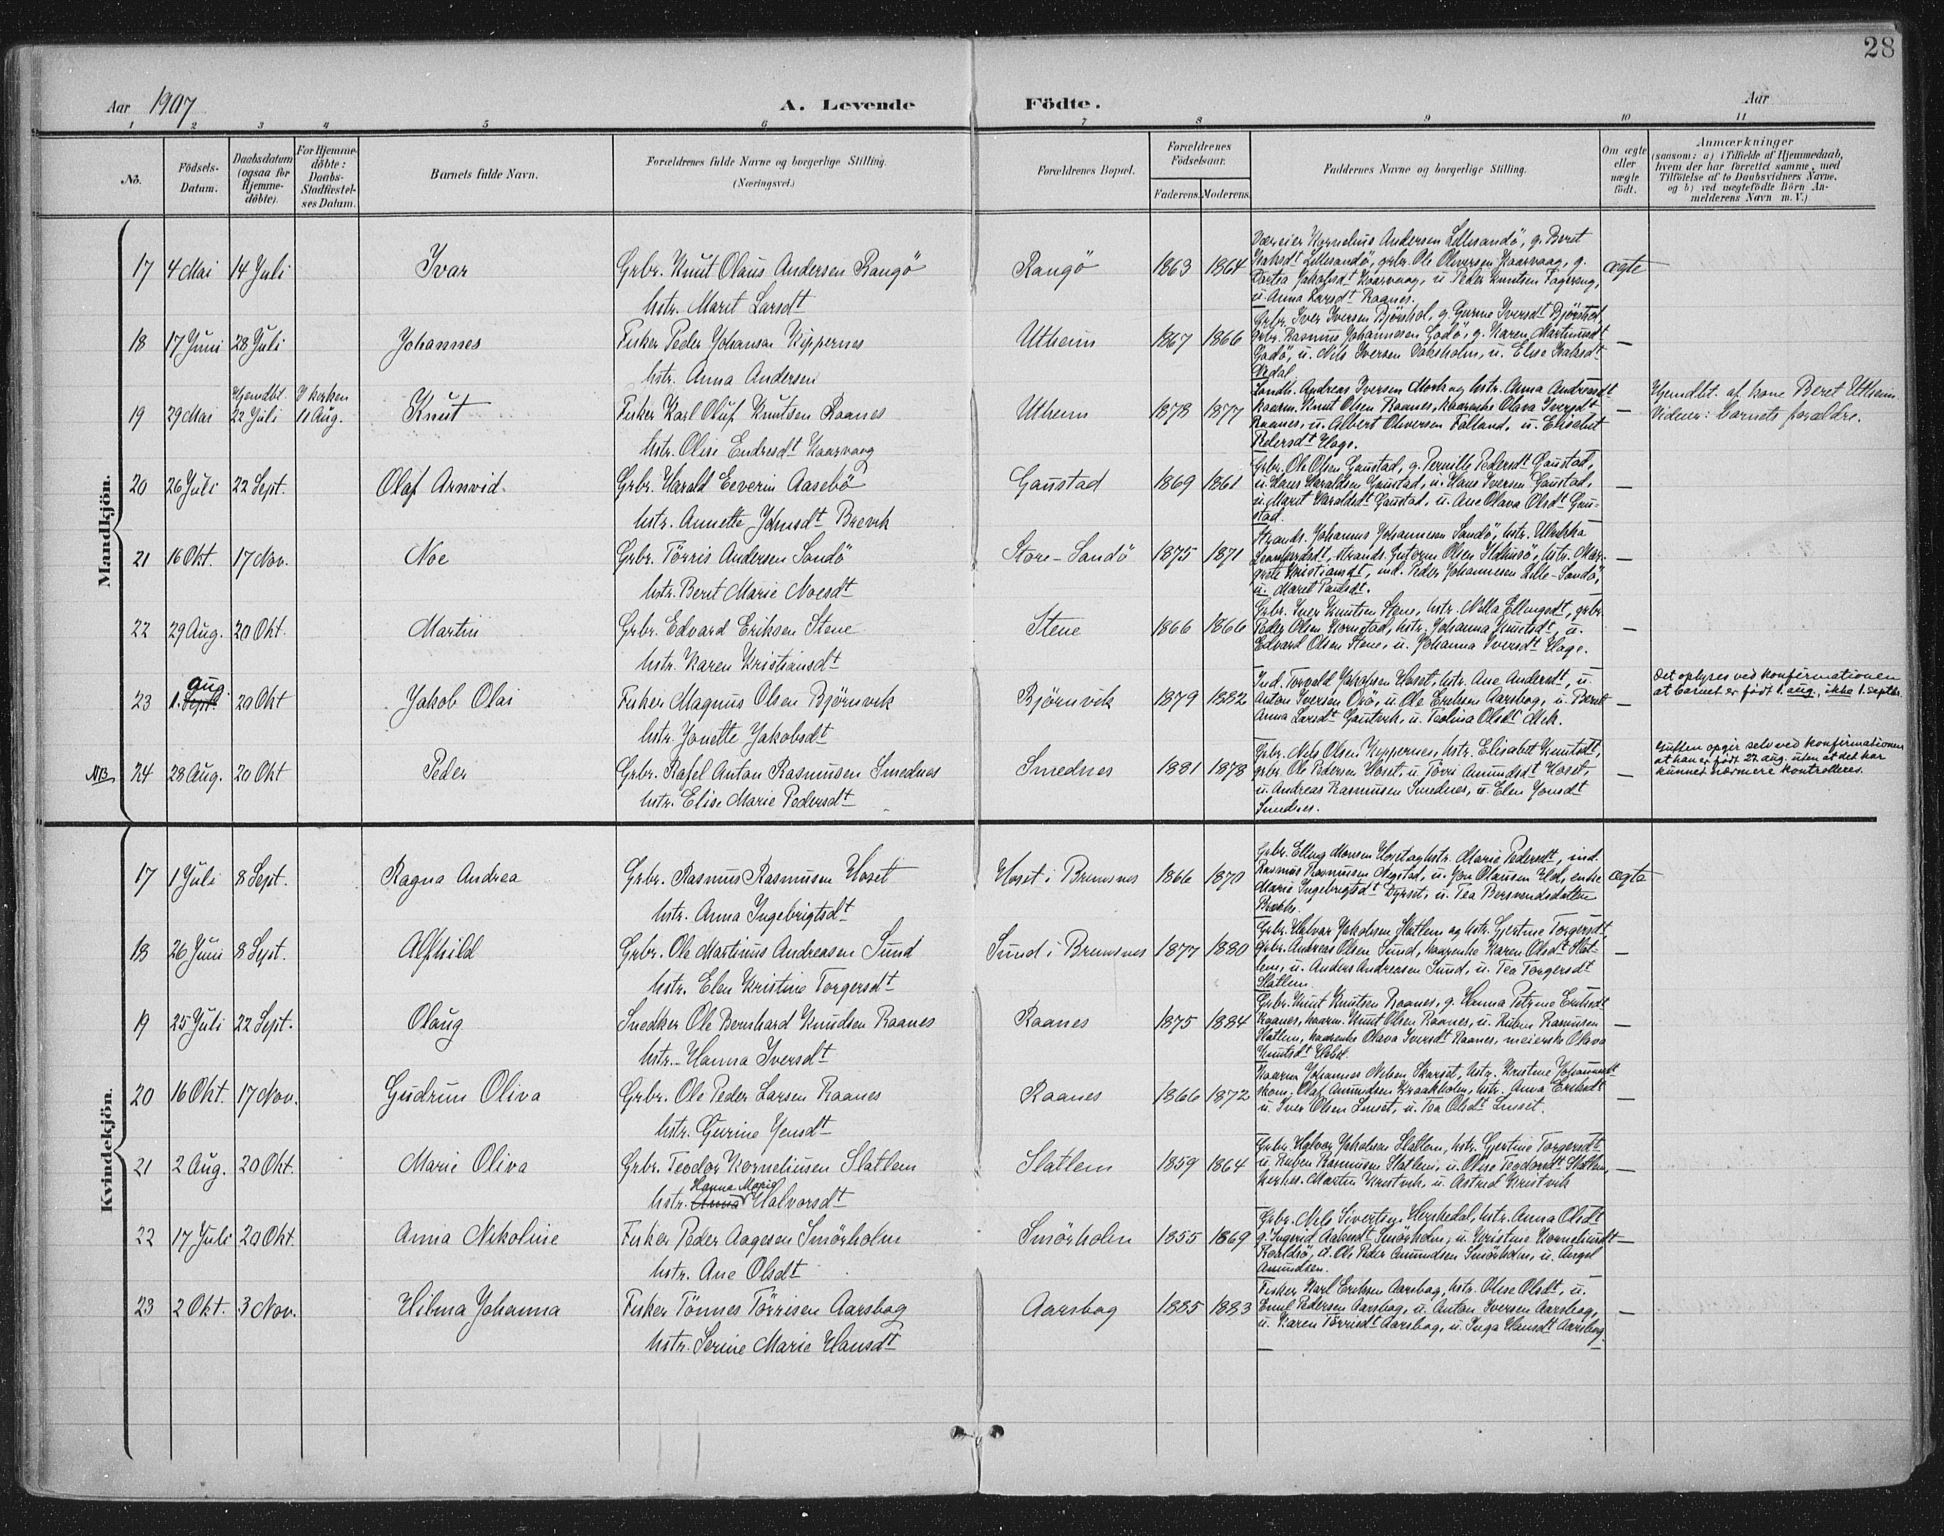 28
Aar 1907 A. Levende Födte. Aar
1 2 3 4 5 6 7 8 9 10 11
No.
Födsels-Datum.
Daabsdatum (ogsaa for Hjemme-döbte).
For Hjemme-döbte: Daabs-Stadfæstel-ses Datum.
Barnets fulde Navn.
Forældrenes fulde Navne og borgerlige Stilling.
(Næringsvei.)
Forældrenes Bopæl.
Forældrenes Födselsaar.
Faderens. Moderens.
Faddernes Navne og borgerlige Stilling.
Om ægte eller uægte födt.
Anmærkninger
(saasom: a) i Tilfælde af Hjemmedaab,
hvem der har forrettet samme, med
Tilföielse af to Daabsvidners Navne,
og b) ved uægtefödte Börn An-
melderens Navn m. V.)
Mandkjön.
17 4 Mai 14 Juli Ivar Grbr. Knut Olaus Andersen Rangö Rangö 1863 1864 ægte
hstr. Marit Larsdt
Væreier Kornelius Andersen Lillesandö, g. Beret
Lillesandö, grbr. Ole Oliversen Kaarvaag, g.
Dortea Jakobsdt Kaarvaag, u. Peder Knutsen Fagereng,
u. Anna Larsdt Raanes.
18 17 Juni 28 Juli Johannes Fisker Peder Johansen Kippernes Utheim 1867 1866 —
hstr. Anna Andersen
Grbr. Iver Iversen Bjørshol, g. Gurine Iversdt Bjørshol
grbr. Rasmus Johannesen Godö, g. Karen Martinusdt
Godö, u. Nils Iversen, u. Elise
19 29 Mai Hjemdbt. 22 Juli I kirken 11 Aug. Knut Fisker Karl Oluf Knutsen Raanes Utheim 1878 1877 —
hstr. Olise Endresdt Kaarvaag
Landh. Andreas Iversen Mork og hstr. Anna Andreasdt
kaarm. Knut Olsen Raanes, Olava Iversdt
Raanes, u. Albert Oliversen Falland, u. Elisabet
Pedersdt Hage.
Hjemdbt. af kone Beret Utheim
Vidner: barnets forældre.
20 26 Juli 22 Sept. Olaf Arnvid. Grbr. Harald Severin Aasebö Gaustad 1869 1861 —
hstr. Annette Jensdt Brevik
Grbr. Ole Olsen Gaustad, g. Pernille Pedersdt Gaustad,
u. Hans Haraldsen Gaustad, u. Hans Iversen Gaustad,
u. Marit Haraldsdt Gaustad, u. Ane Olava Olsdt Gau-
stad.
21 16 Okt. 17 Nov. Noe Grbr. Törris Andersen Sandö Store-Sandö 1875 1871 —
hstr. Berit Marie Noesdt
Strands. Johannes Johannesen Sandö, hstr. Ulrikka
strands. Olsen, hstr. Mar-
grete Kristiansdt, ind. Peder Johannesen Lille-Sandö,
u. Maret Paulsdt.
22 29 Aug. 20 Okt. Martin Grbr. Edvard Eriksen Stene Stene 1866 1866 —
hstr. Karen Kristiansdt
Grbr. Iver Knutsen Stene, hstr. Nilla Ellingsdt, grbr.
Peder Olsen Kornstad, hstr. Johanna Knutsdt, u.
Edvard Olsen Stene, u. Johanna Iversdt Hage.
23 1. Sept. aug. 20 Okt Jakob Olai Fisker Magnus Olsen Bjørnvik Bjørnvik 1879 1882 —
hstr. Jonette Jakobsdt
Ind. Torvald Jakobsen Hoset, hstr. Ane Andersdt, u.
Anton Iversen, u. Ole Eriksen Aarsbog, u. Beret
Anna Larsdt Gautvik, u. Teolina Olsdt Mek.
Det oplyses ved konfirmationen
at barnet er født 1. aug., ikke 1. septbr.
NB 24 28 Aug. 20 Okt Peder Grbr. Rafel Anton Rasmusen Smednes Smednes 1881 1878 —
hstr. Elise Marie Pedersdt
Grbr. Nils Olsen Kippernes, hstr. Elisabet Knutsdt,
grbr. Ole Pedersen Hoset, u. Tövri Amundsdt Hoset,
u. Andreas Rasmusen Smednes, u. Elen Jonsdt
Smednes.
Gutten opgir selv ved konfirmationen
at han er født 27 aug. uten at det har
kunnet nærmere kontrolleres.
Kvindekjön.
17 1 Juli 8 Sept. Ragna Andrea Grbr. Rasmus Rasmusen Hoset Hoset i Bremsnes 1866 1870 ægte
hstr. Anna Ingebrigtsdt
Grbr. Elling Monsen Hoset og hstr. Marie Pedersdt, ind.
Rasmus Rasmusen Øigstad, u. Jon Olausen Eld, enke
Marie Ingebrigtsdt Dyrset, u. Tea Bersvendsdatter
18 26 Juni 8 Sept. Alfhild Grbr. Ole Martinus Andreasen Sund Sund i Bremsnes 1877 1880 —
hstr. Elen Kristine Torgersdt
Grbr. Halvar Jakobsen Slatlem og hstr. Gjertine Torgersdt
Grbr. Andreas Olsen Sund, kaarenke Karen Olsdt Slat-
lem, u. Anders Andreasen Sund, u. Tea Torgersdt
Slatlem.
19 25 Juli 22 Sept. Olaug Snedker Ole Bernhard Knudsen Raanes Raanes 1875 1884 —
hstr. Hanna Iversdt
Grbr. Knut Knutsen Raanes, g. Hanna Petrine Eriksdt
Raanes, kaarm. Knut Olsen Raanes, u. Ruben Rasmusen
Slatlem, kaarenke Olava Iversdt Raanes, meierske Olava
Knutsdt
20 16 Okt. 17 Nov. Gudrun Oliva Grbr. Ole Peder Larsen Raanes Raanes 1866 1872 —
hstr. Gurine Jensdt
Kaarm. Johannes Nilsen Skarset, hstr. Kristine Johannesdt
Olaf Amundsen Kraakholm, hstr. Anna Eriksdt
u. Iver Olsen Linset, u. Tea Olsdt Linset.
21 2 Aug. 20 Okt. Marie Oliva Grbr. Teodor Korneliusen Slatlem Slatlem 1859 1864 —
Hanna Marie
hstr. Anna Halvorsdt
Grbr. Halvar Jakobsen Slatlem, hstr. Gjertine Torgersdt
u. Ruben Rasmusen Slatlem, u. Olise Teodorsdt Slatlem,
Martin Kristvik, u. Astrid Kristvik
22 17 Juli 20 Okt. Anna Nikoline Fisker Peder Aagesen Smörholm Smörholm 1855 1869 —
hstr. Ane Olsdt
Grbr. Nils Sivertsen, hstr. Anna Olsdt
g. Ingerid Smörholm, u. Kristine Korneliusdt
Roaldsö, u. Ole Peder Amundsen Smörholm, u. Angel
Amundsen.
23 2 Okt. 3 Nov. Hilma Johanna Fisker Tönnes Törrisen Aarsbog Aarsbog 1885 1883 —
hstr. Serine Marie Hansdt
Fisker Karl Eriksen Aarsbog, hstr. Olise Olsdt, u.
Emil Pedersen Aarsbog, u. Anton Iversen Aarsbog,
u. Karen Törrisdt Aarsbog, u. Inga Hansdt Aarsbog.